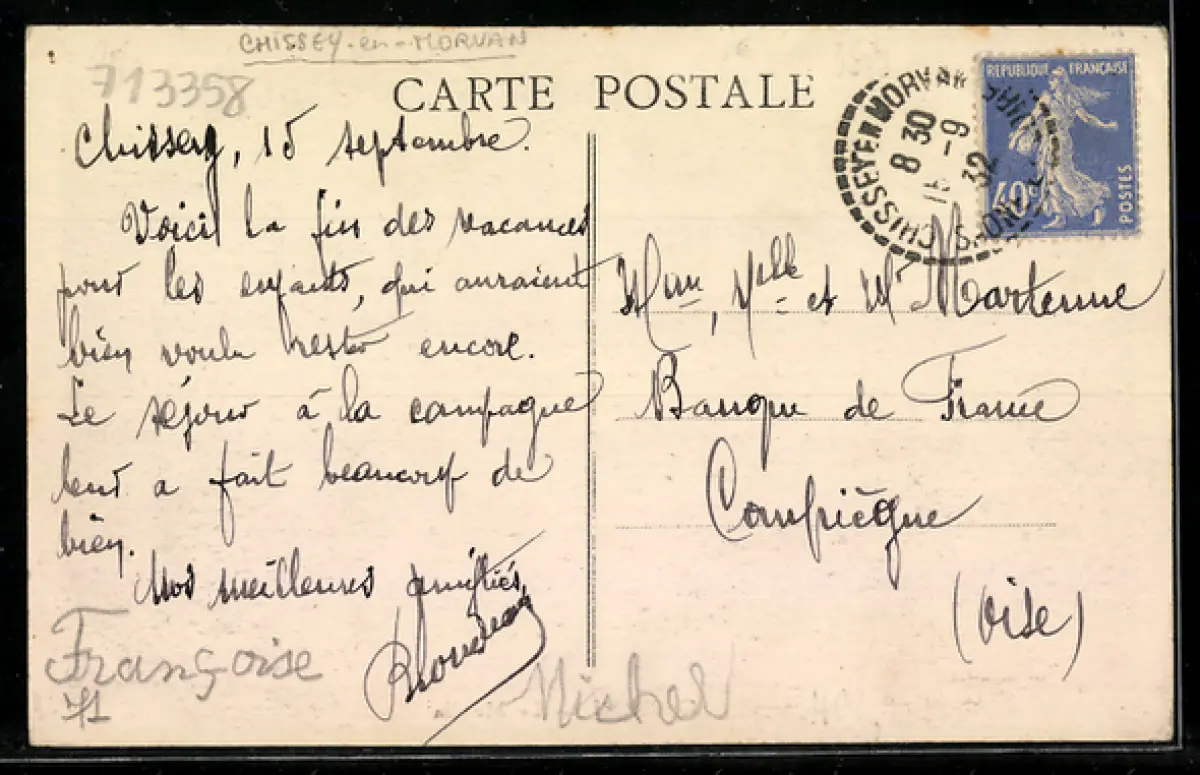 CHISSEY-en-MORVAN
713358
CARTE POSTALE
Chissey, 15 septembre.
Voici la fin des vacances
pour les enfants, qui auraient
bien voulu rester encore.
Le séjour à la campagne
leur a fait beaucoup de
bien.
Nos meilleures amitiés
Françoise
Michel
71
REPUBLIQUE FRANÇAISE
40c
POSTES
CHISSEY EN MORVAN
SAONE
8 30
15 -9
32
Mme, Melle et Mr Martenne
Banque de France
Compiègne
(Oise)